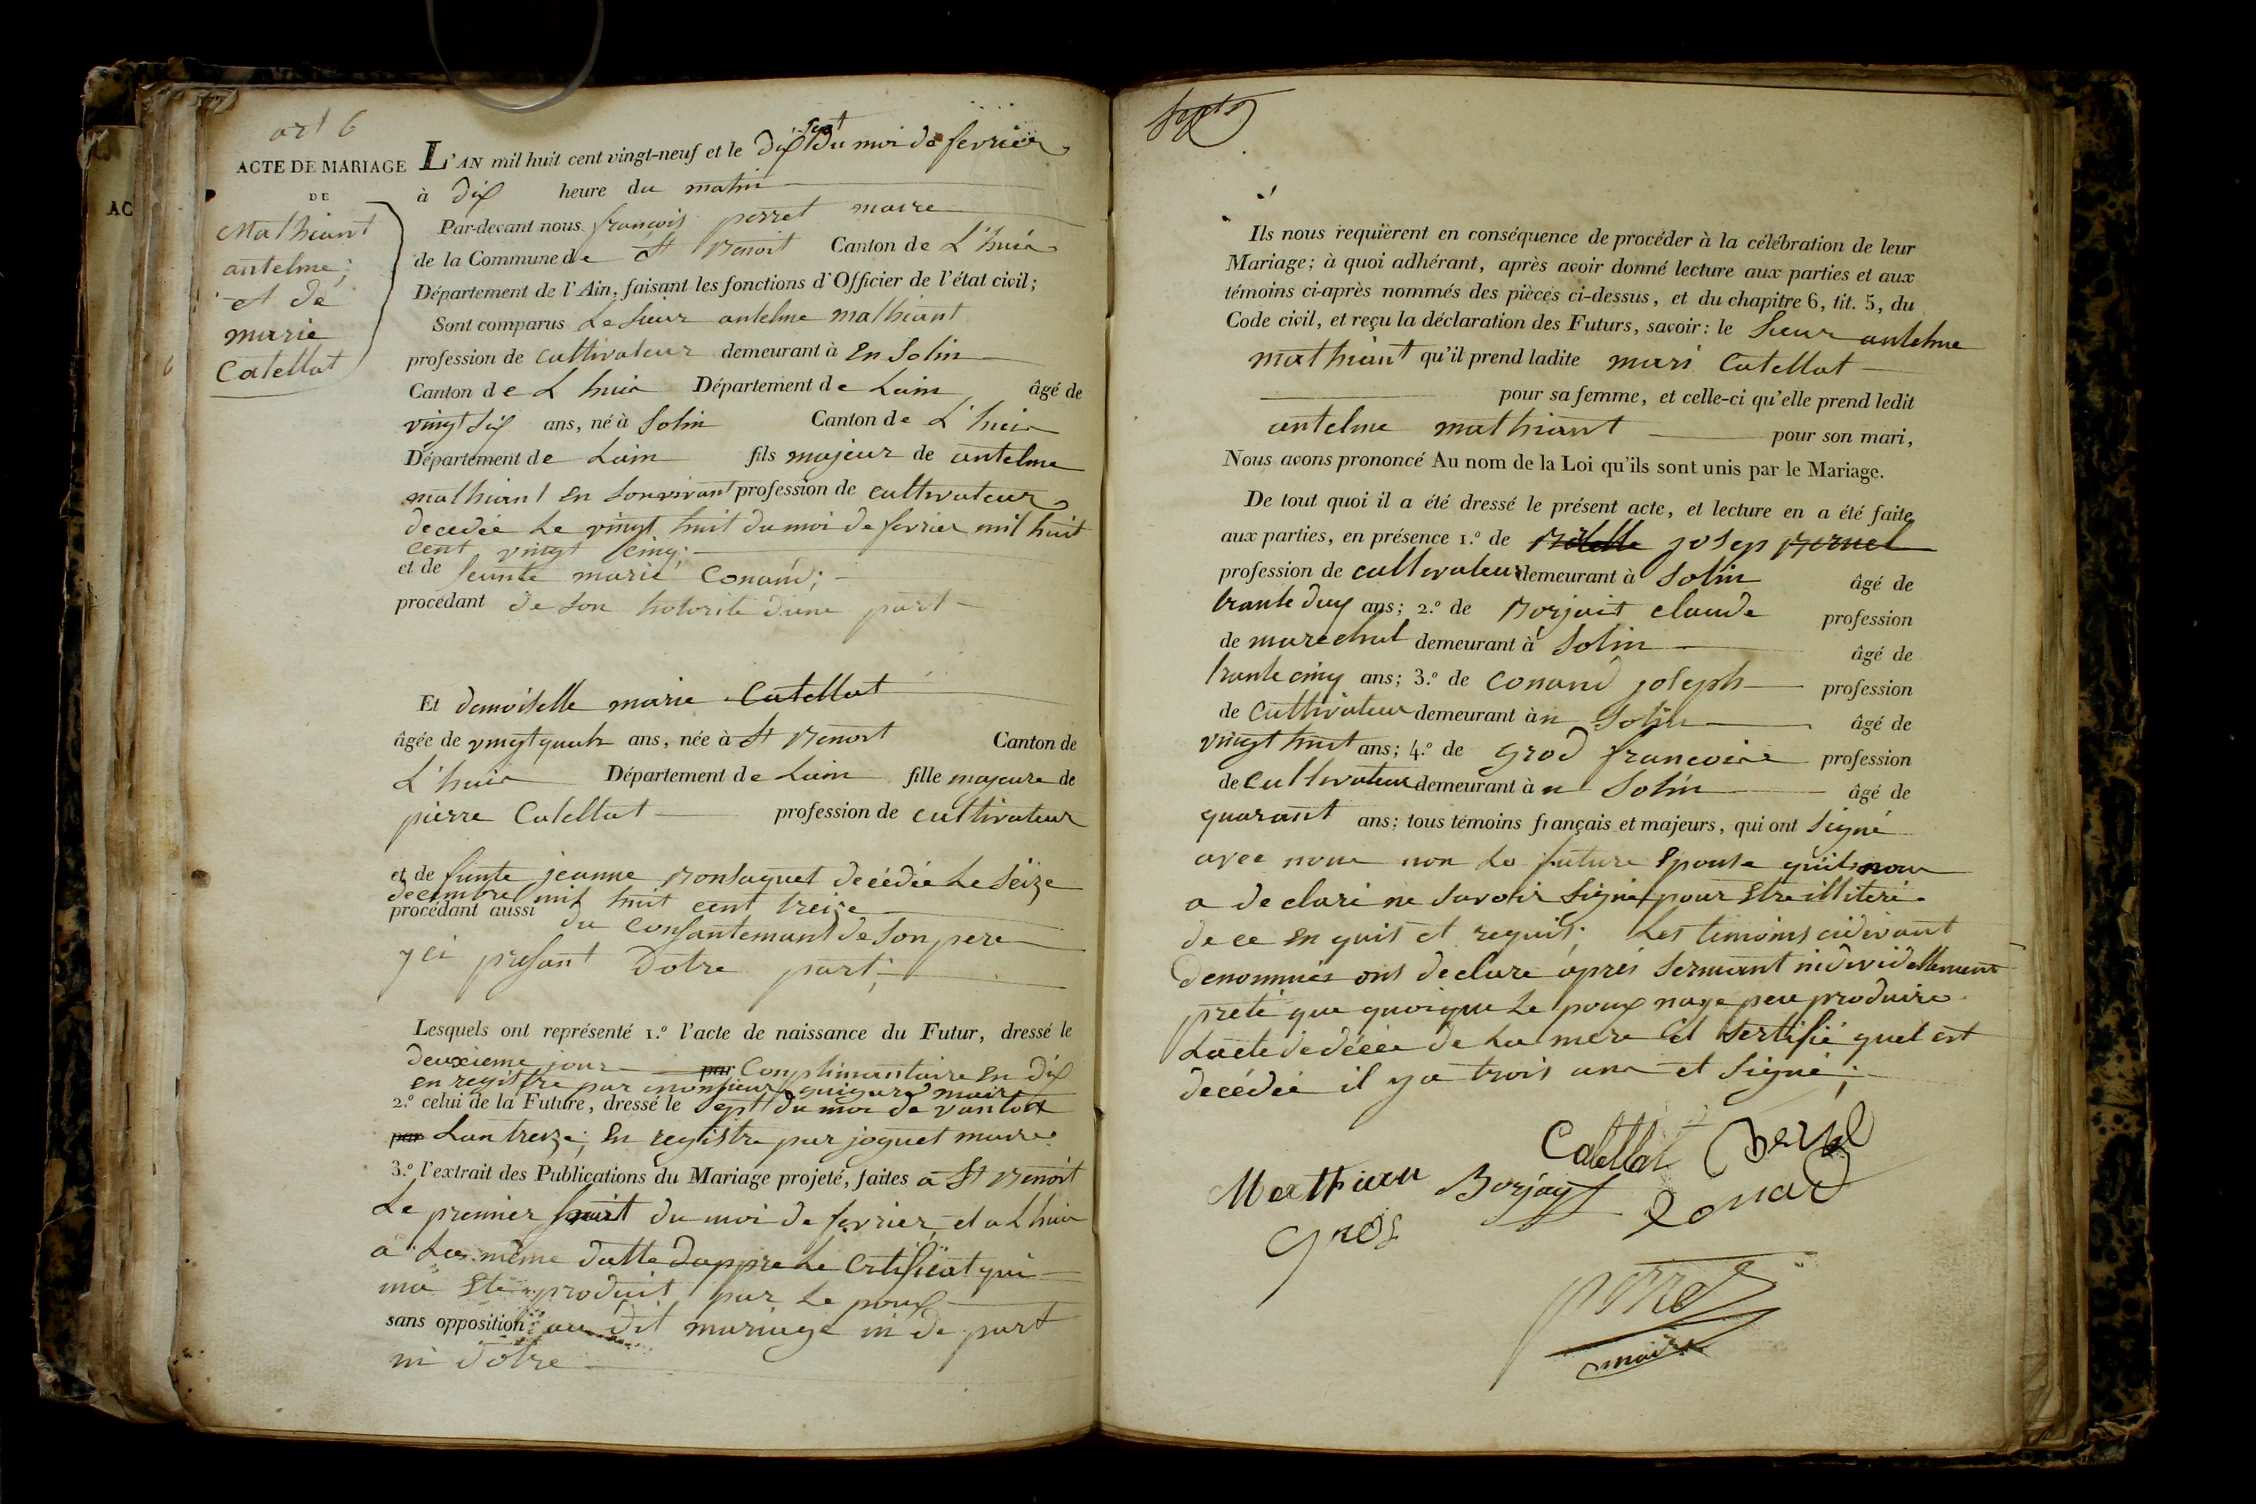 art 6
ACTE DE MARIAGE
DE
Mathiant
antelme;
et de
marie
Catellat
6
AC
L'AN mil huit cent vingt-neuf et le dix sept du moi de fevrier
à dix heure du matin
Par-devant nous françois perret maire
de la Commune de St Benoit Canton de L'huis
Département de l'Ain, faisant les fonctions d'Officier de l'état civil;
Sont comparus Le Sieur antelme mathiant
profession de cultivateur demeurant à En Solin
Canton de L huis Département de Lain âgé de
vingt Six ans, né à Solin Canton de L'huis
Département de Lain fils majeur de antelme
mathiant En Sonvivant profession de cultivateur
decedée Le vingt huit du moi de fevrier mil huit
cent vingt cinq;
et de feunte marie Conand;
procédant de Son hotorité dune part
Et demoiselle marie Catellat
âgée de vingt quatr ans, née à St Benoit Canton de
L'huis Département de Lain fille majeure de
pierre Catellat profession de cultivateur
et de funte jeanne Bonsaquet decédée Le Seize
decembre mil huit cent treize
procédant aussi du Consantemant de Son pere
yci presant Dotre part;
Lesquels ont représenté 1.º l'acte de naissance du Futur, dressé le
deuxieme jour par Complimantaire En dix
en registre par monsieur guigard maire
2.º celui de la Future, dressé le Sept du moi de vantose
par Lan treize; En registre par joguet maire
3.º l'extrait des Publications du Mariage projeté, faites a St Benoit
Le premier huit du moi de fevrier, et a L huis
a La même datte dappre Le Certificat qui
ma Eté produit par Le poux
sans opposition au dit mariage ni de part
ni dotre
Septs
Ils nous requièrent en conséquence de procéder à la célébration de leur
Mariage; à quoi adhérant, après avoir donné lecture aux parties et aux
témoins ci-après nommés des pièces ci-dessus, et du chapitre 6, tit. 5, du
Code civil, et reçu la déclaration des Futurs, savoir: le Sieur antelme
mathiant qu'il prend ladite mari Catellat
pour sa femme, et celle-ci qu'elle prend ledit
antelme mathiant pour son mari,
Nous avons prononcé Au nom de la Loi qu'ils sont unis par le Mariage.
De tout quoi il a été dressé le présent acte, et lecture en a été faite
aux parties, en présence 1.º de josep Bernel
profession de cultivateur demeurant à Solin âgé de
trante dux ans; 2.º de Borjait claude profession
de marechal demeurant à Solin âgé de
trante cinq ans; 3.º de Conand joseph profession
de Cultivateur demeurant à n Solin âgé de
vingt huit ans; 4.º de grod francoise profession
de Cultivateur demeurant à n Solin âgé de
quarant ans; tous témoins français et majeurs, qui ont Signé
avec nous non La future Epouse quil nous
a declaré ne Savoir Signer pour Etre illiteré
de ce En quis et requis; Les temoins cidevant
denommés ont declaré aprés Sermant individellement
preté que quoique Le poux naye peu produire
Lacte dedécée de La mere il Sertifié quel est
decédée il y a trois ans et Signé;
Catellat Bernel
Mathian Borjay Conard
gros
perret
maire